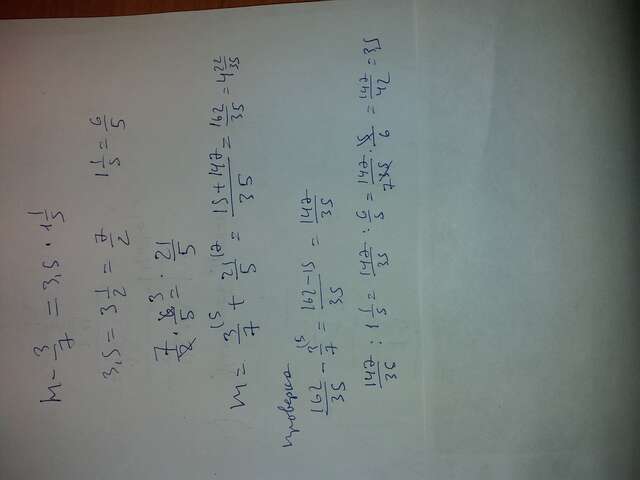 m - 3/7 = 3,5 · 1 1/5
3,5 = 3 1/2 = 7/2    1 1/5 = 6/5
7/2 · 6/5 ³ = 21/5
m = 3/7 ¹⁵ + 21/5 ¹⁷ = (15+147)/35 = 162/35 = 4 22/35
проверка
162/35 - 3/7 ¹⁵ = (162-15)/35 = 147/35
147/35 : 1 1/5 = 147/35 : 6/5 = 147/7 35 · 5/6 = 147/42 = 3,5